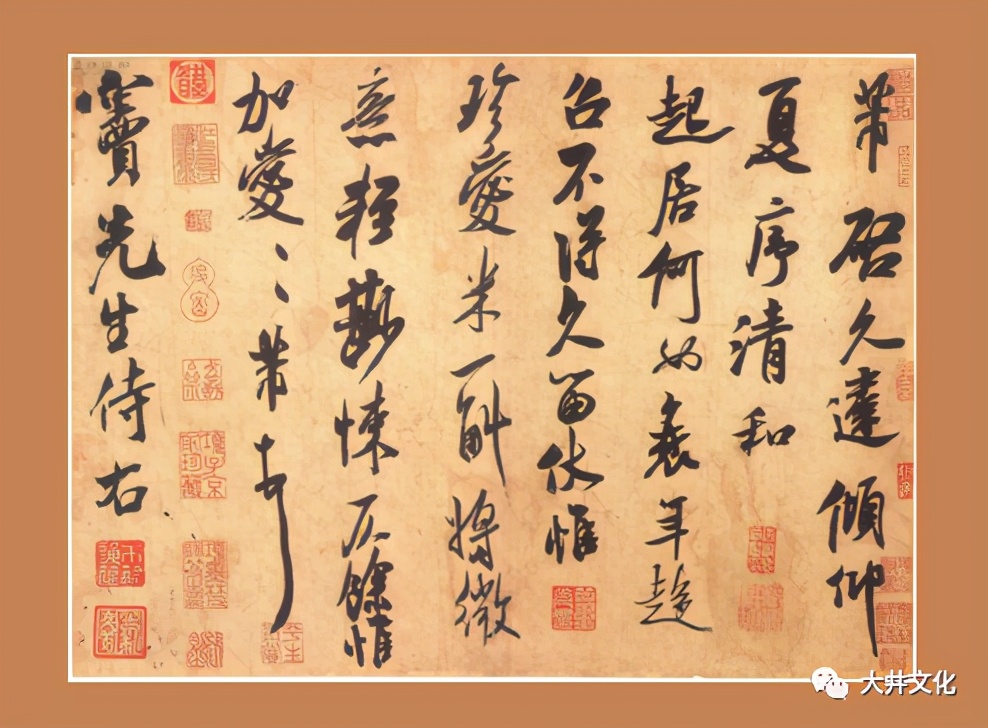 芾啓久違傾仰
夏序清和
起居何如衰年趨
召不得久留伏惟
珍愛米一斛將微
意輕尠悚仄餘惟
加愛〻〻芾頓首
竇先生侍右
大井文化